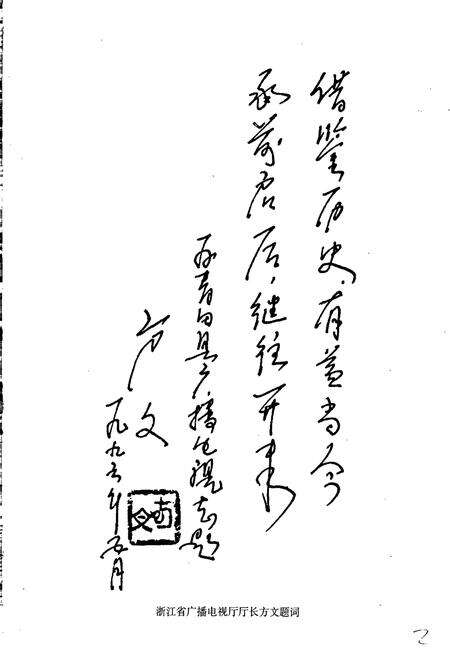 借鉴历史，有益当今
承前启后，继往开来
为青田县广播电视志题
方文
一九九六年五月
浙江省广播电视厅厅长方文题词
2